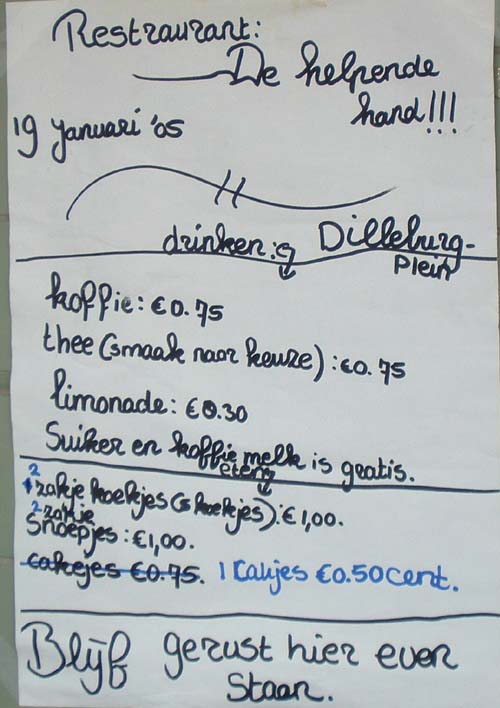 Restraurant:
De helpende
hand!!!
19 januari '05
drinken:
Dilleburg-
Plein
koffie: €0.75
thee (smaak naar keuze): €0.75
limonade: €0.30
Suiker en koffie melk is gratis.
eten:
2 zakje koekjes (3 koekjes): €1,00.
2 zakje
Snoepjes: €1,00.
cakejes €0.75. 1 Cakjes €0.50 cent.
Blijf gerust hier even
Staan.